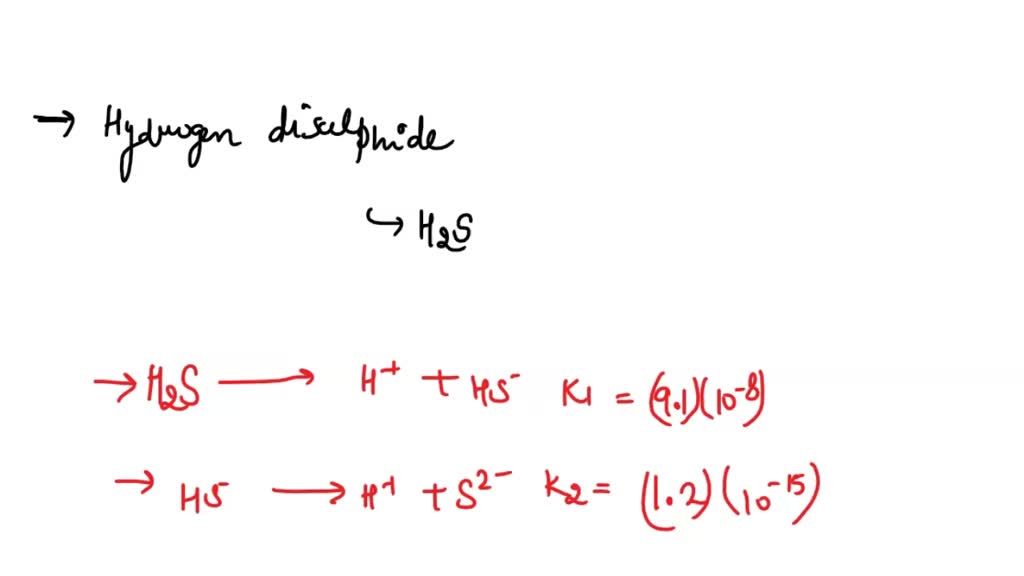 → Hydrogen disulphide
↪ H₂S
→ H₂S ⟶ H⁺ + HS⁻ K₁ = (9.1)(10⁻⁸)
→ HS⁻ ⟶ H⁺ + S²⁻ K₂ = (1.2)(10⁻¹⁵)